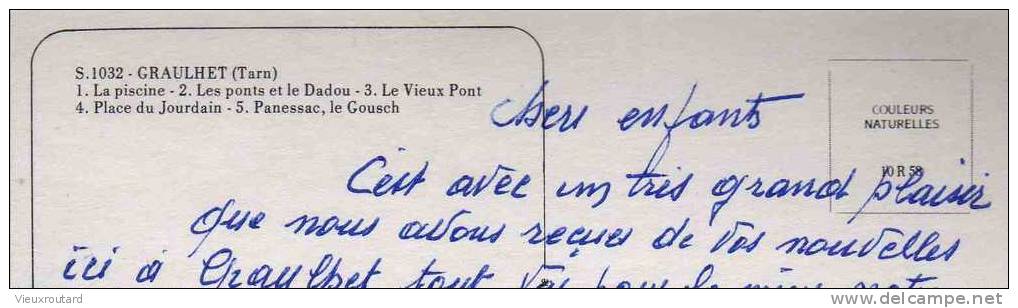 S.1032 - GRAULHET (Tarn)
1. La piscine - 2. Les ponts et le Dadou - 3. Le Vieux Pont
4. Place du Jourdain - 5. Panessac, le Gousch
COULEURS
NATURELLES
10 R 58
Chers enfants
C'est avec un très grand plaisir
que nous avons reçues de vos nouvelles
ici à Graulhet tout va pour le mieux
Vieuxroutard
delcampe.net